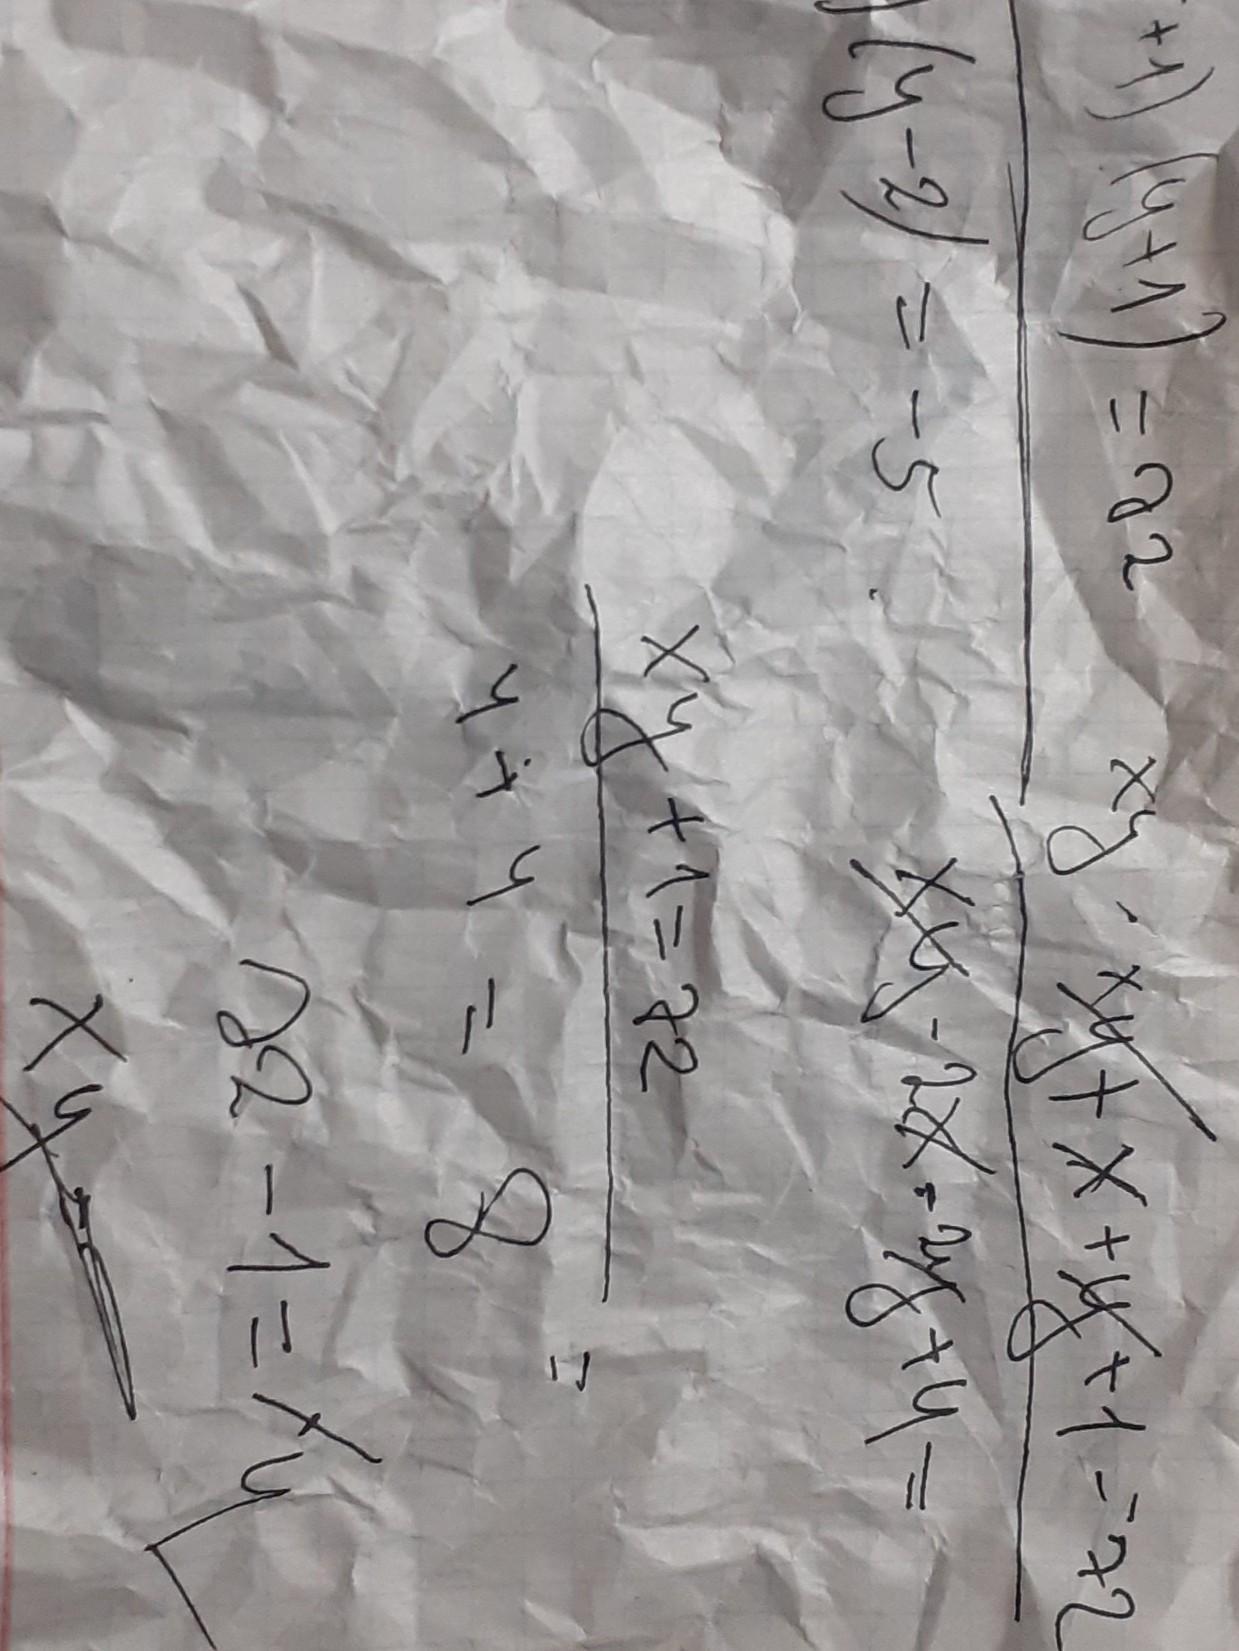 +1) (y+1) = 22
xy . xy + x + y + 1 = 22
) (y-2) = -5
xy - 2x - 2y + 4 =
xy + 1 = 22
4 + 4 = 8
22 - 1 = xy
xy